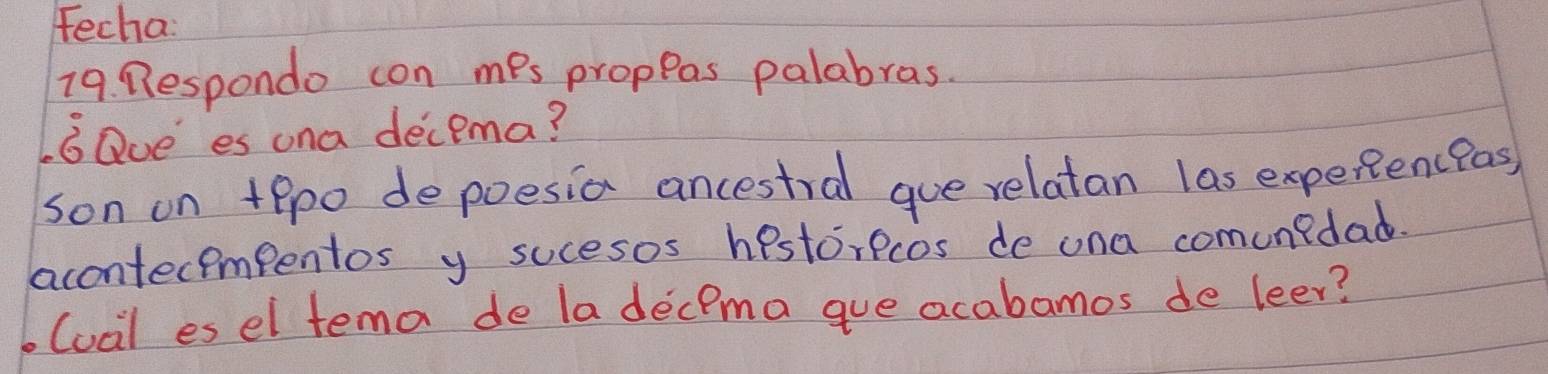 Fecha:
19. Respondo con mis propias palabras.
• ¿Qué es una décima?
son un tipo de poesía ancestral que relatan las experiencias,
acontecimientos y sucesos históricos de una comunidad.
• Cuál es el tema de la décima que acabamos de leer?